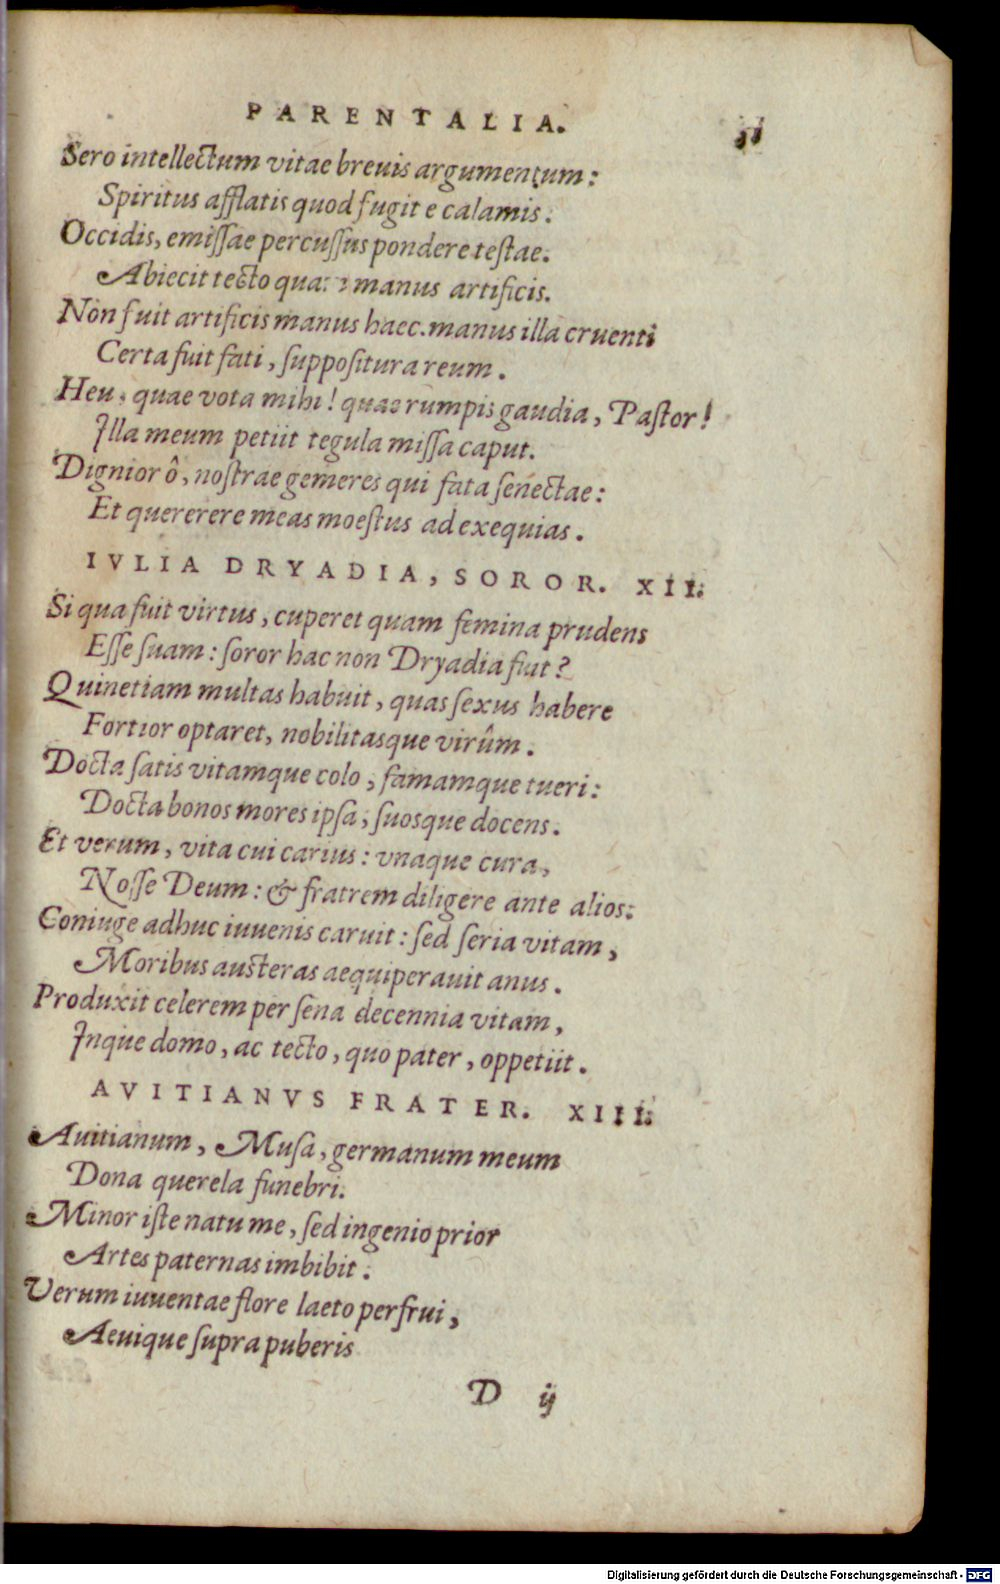 PARENTALIA. 51
Sero intellectum vitae breuis argumentum:
Spiritus afflatis quod fugit e calamis.
Occidis, emissae percussus pondere testae.
Abiecit tecto quam manus artificis.
Non fuit artificis manus haec. manus illa cruenti
Certa fuit fati, suppositura reum.
Heu, quae vota mihi! quae rumpis gaudia, Pastor!
Illa meum petiit tegula missa caput.
Dignior ô, nostrae gemeres qui fata senectae:
Et quererere meas moestus ad exequias.
IVLIA DRYADIA, SOROR. XII.
Si qua fuit virtus, cuperet quam femina prudens
Esse suam: soror hac non Dryadia fuit?
Quinetiam multas habuit, quas sexus habere
Fortior optaret, nobilitasque virûm.
Docta satis vitamque colo, famamque tueri:
Docta bonos mores ipsa, suosque docens.
Et verum, vita cui carius: vnaque cura,
Nosse Deum: & fratrem diligere ante alios:
Coniuge adhuc iuuenis caruit: sed seria vitam,
Moribus austeras aequiperauit anus.
Produxit celerem per sena decennia vitam,
Inque domo, ac tecto, quo pater, oppetiit.
AVITIANVS FRATER. XIII.
Auitianum, Musa, germanum meum
Dona querela funebri.
Minor iste natu me, sed ingenio prior
Artes paternas imbibit.
Verum iuuentae flore laeto perfrui,
Aeuique supra puberis
D ij
Digitalisierung gefördert durch die Deutsche Forschungsgemeinschaft - DFG